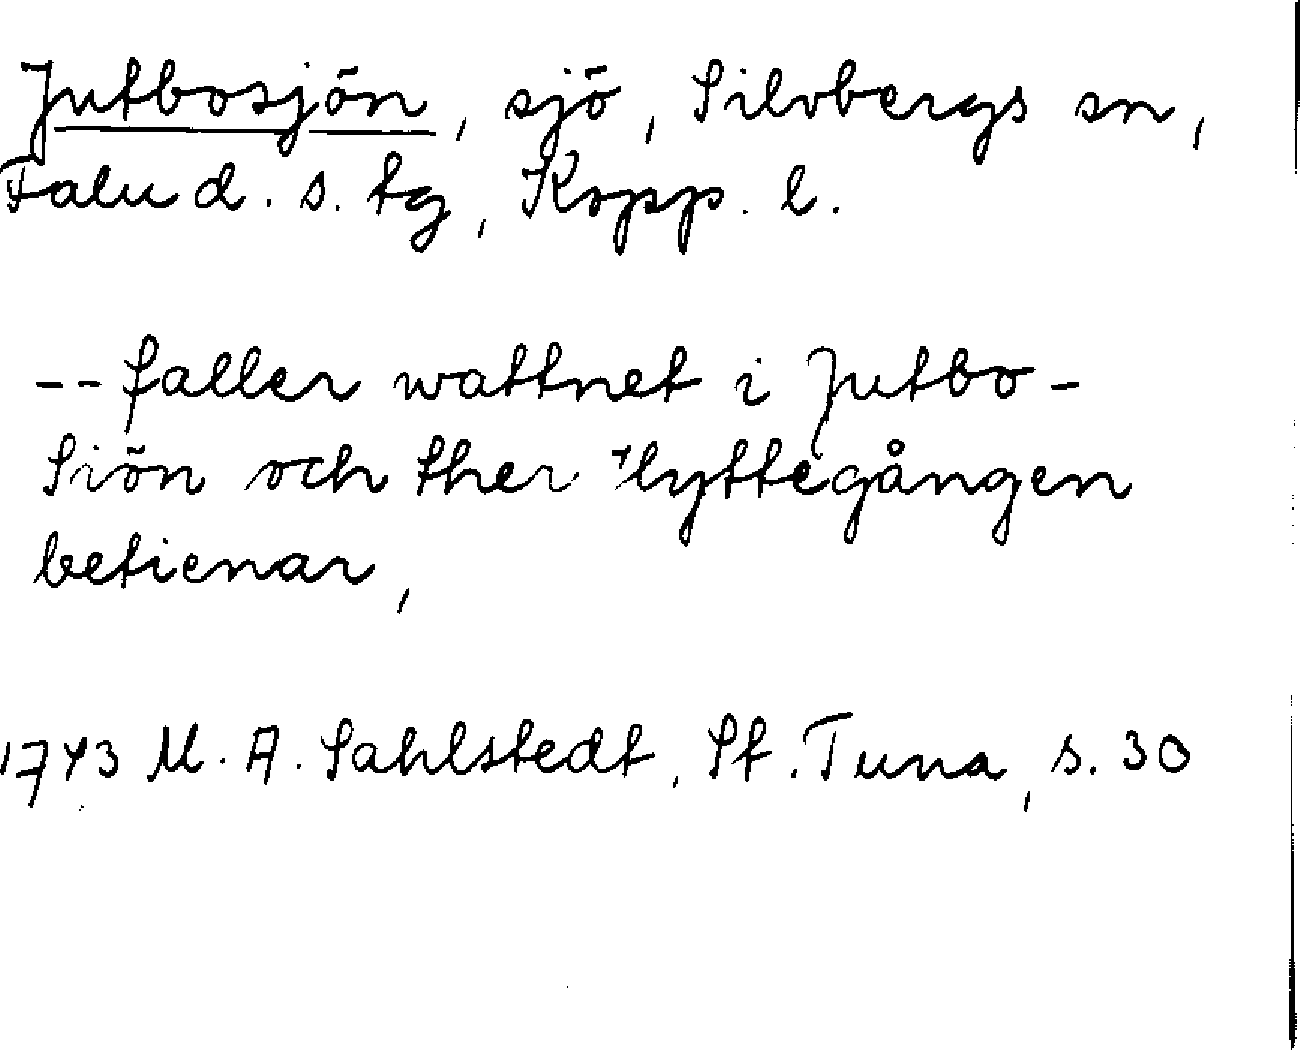 Jutbosjön, sjö, Silvbergs sn,
Falu d. s. tg, Kopp. l.
-- faller wattnet i Jutbo-
Siön och ther Hyttegången
betienar,
1743 M. A. Sahlstedt, St. Tuna, s. 30